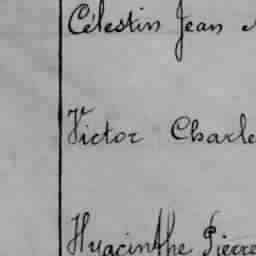 Célestin Jean
Victor Charle
Hyacinthe Pierre